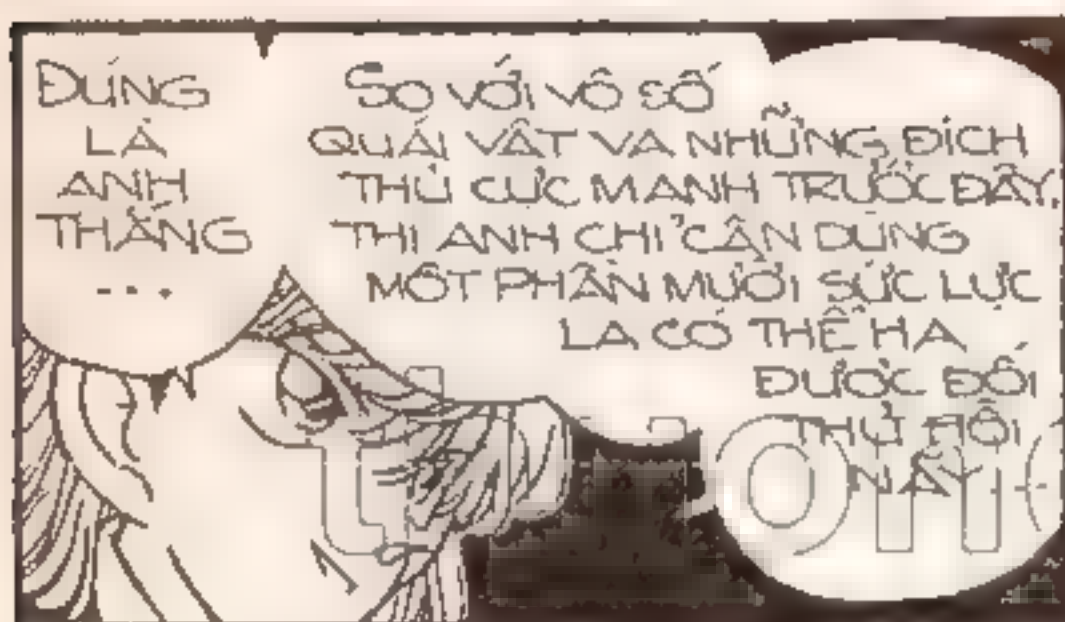 ĐÚNG
LÀ
ANH
THẮNG
...
SO VỚI VÔ SỐ
QUÁI VẬT VA NHỮNG ĐỊCH
THỦ CỰC MẠNH TRƯỚC ĐÂY,
THI ANH CHỈ CẦN DÙNG
MỘT PHẦN MƯỜI SỨC LỰC
LA CÓ THỂ HẠ
ĐƯỢC ĐỐI
THỦ HỒI
NÃY